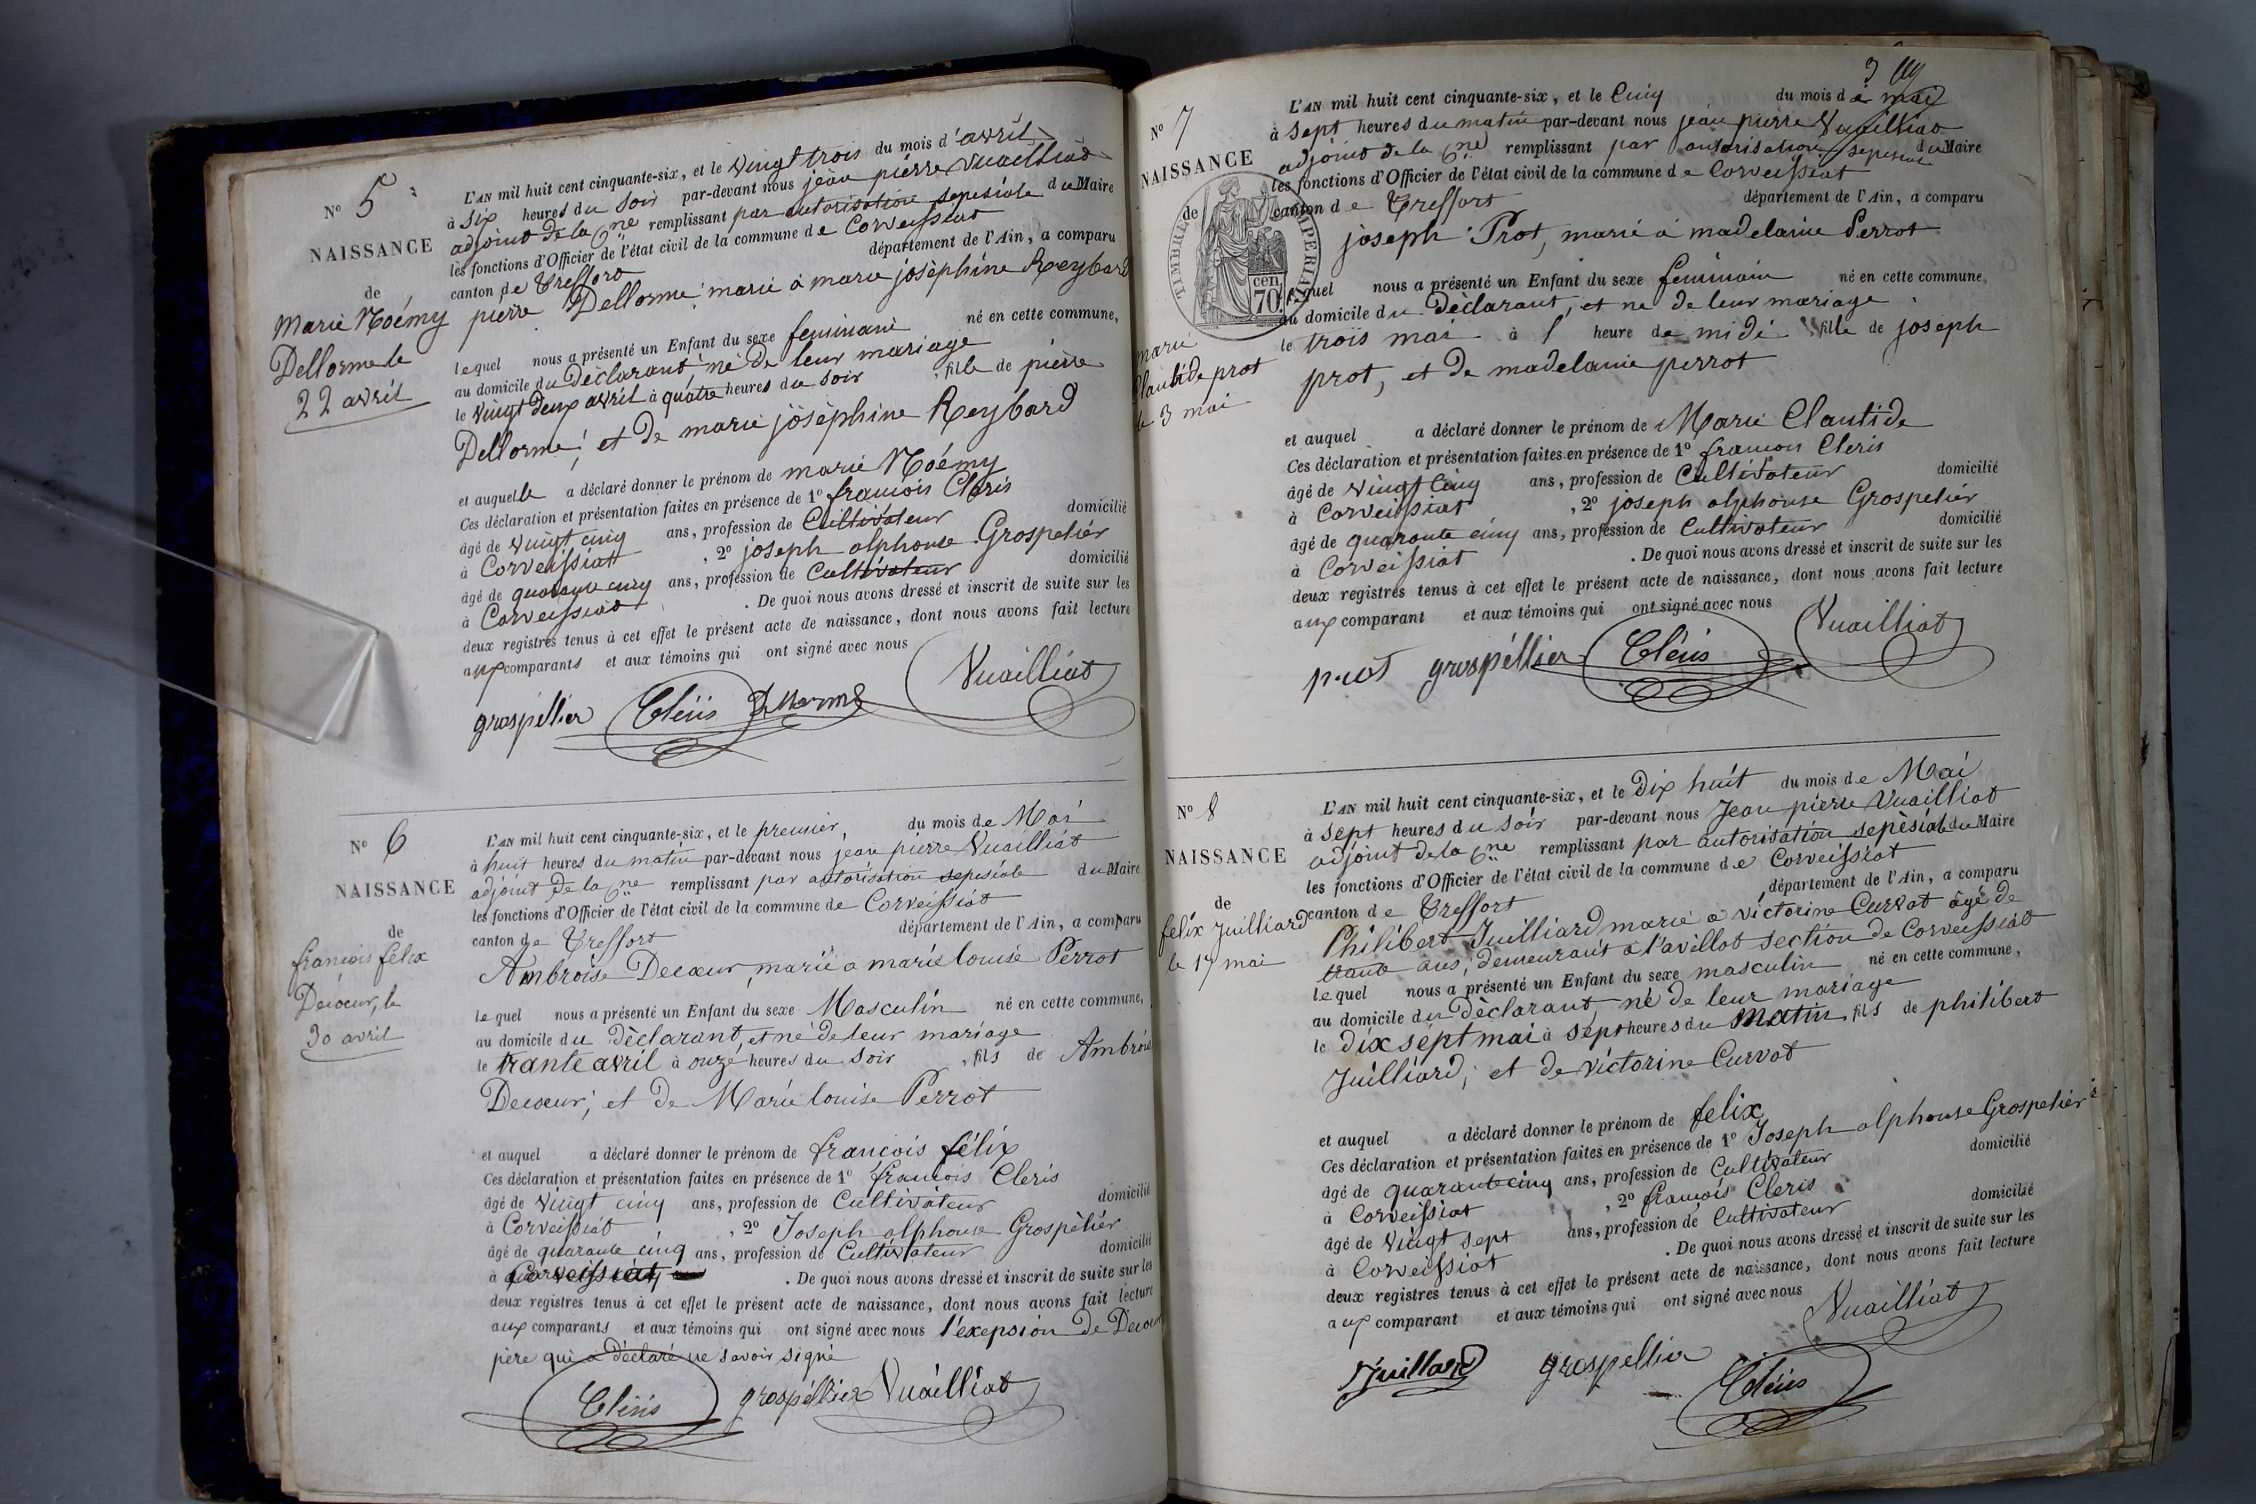 N° 5
NAISSANCE
de
Marie Noémy
Dellorme le
22 avril
L'AN mil huit cent cinquante-six, et le vingt trois du mois d'avril
à six heures du soir par-devant nous jean pierre Vuailliat
adjoint de la Cne remplissant par autorisation sepesiale du Maire
les fonctions d'Officier de l'état civil de la commune de Corveissiat
canton de Treffort département de l'Ain, a comparu
pierre Dellorme marié à marie josèphine Reybard
lequel nous a présenté un Enfant du sexe feminain né en cette commune,
au domicile du Dèclarant né de leur mariage
le vingt deux avril à quatre heures du soir , fille de pierre
Dellorme; et de marie josèphine Reybard
et auquelle a déclaré donner le prénom de marie Noémy
Ces déclaration et présentation faites en présence de 1° francois Cleris
âgé de vingt cinq ans, profession de Cultivateur domicilié
à Corveissiat , 2° joseph alphonse Grospelier
âgé de quarante cinq ans, profession de Cultivateur domicilié
à Corveissiat . De quoi nous avons dressé et inscrit de suite sur les
deux registres tenus à cet effet le présent acte de naissance, dont nous avons fait lecture
aux comparants et aux témoins qui ont signé avec nous
Vuailliat
grospéllier Cléris Dellorme
N° 6
NAISSANCE
de
francois félix
Decœur, le
30 avril
L'AN mil huit cent cinquante-six, et le premier, du mois de Mai
à huit heures du matin par-devant nous jean pierre Vuailliat
adjoint de la Cne remplissant par autorisation sepesiale du Maire
les fonctions d'Officier de l'état civil de la commune de Corveissiat
canton de Treffort département de l'Ain, a comparu
Ambroise Decœur, marié a marie louise Perrot
lequel nous a présenté un Enfant du sexe Masculin né en cette commune,
au domicile du Dèclarant, et né de leur mariage
le trante avril à onze heures du soir , fils de Ambroise
Decœur; et de Marie louise Perrot
et auquel a déclaré donner le prénom de francois félix
Ces déclaration et présentation faites en présence de 1° francois Cleris
âgé de vingt cinq ans, profession de Cultivateur domicilié
à Corveissiat , 2° Joseph alphonse Grospèlier
âgé de quarante cinq ans, profession de Cultivateur domicilié
à Corveissiat . De quoi nous avons dressé et inscrit de suite sur les
deux registres tenus à cet effet le présent acte de naissance, dont nous avons fait lecture
aux comparants et aux témoins qui ont signé avec nous l'exepsion de Decœur
père qui a déclaré ne savoir signé
Cléris grospéllier Vuailliat
3
N° 7
NAISSANCE
de
TIMBRE IMPERIAL
70 cen
marie
Clautide prot
le 3 mai
L'AN mil huit cent cinquante-six, et le Cinq du mois de mai
à sept heures du matin par-devant nous jean pierre Vuailliat
adjoint de la Cne remplissant par autorisation sepesiale du Maire
les fonctions d'Officier de l'état civil de la commune de Corveissiat
canton de Treffort département de l'Ain, a comparu
joseph Prot, marié à madelaine Perrot
lequel nous a présenté un Enfant du sexe feminain né en cette commune,
au domicile du Dèclarant, et né de leur mariage
le trois mai à 1 heure de midi fille de joseph
prot, et de madelaine perrot
et auquel a déclaré donner le prénom de Marie Clautide
Ces déclaration et présentation faites en présence de 1° francois Cleris
âgé de vingt Cinq ans, profession de Cultivateur domicilié
à Corveissiat , 2° joseph alphonse Grospelier
âgé de quarante cinq ans, profession de Cultivateur domicilié
à Corveissiat . De quoi nous avons dressé et inscrit de suite sur les
deux registres tenus à cet effet le présent acte de naissance, dont nous avons fait lecture
aux comparant et aux témoins qui ont signé avec nous
prot grospéllier Cléris Vuailliat
N° 8
NAISSANCE
de
felix Juilliard
le 17 mai
L'AN mil huit cent cinquante-six, et le Dix huit du mois de Mai
à sept heures du soir par-devant nous Jean pierre Vuailliat
adjoint de la Cne remplissant par autorisation sepèsiale du Maire
les fonctions d'Officier de l'état civil de la commune de Corveissiat
canton de Treffort département de l'Ain, a comparu
Philibert Juilliard marié a victorine Curvat âgé de
trante ans, demeurant a l'avillat section de Corveissiat
lequel nous a présenté un Enfant du sexe masculin né en cette commune,
au domicile du Dèclarant, né de leur mariage
le dix sept mai à sept heures du matin, fils de philibert
Juilliard; et de victorine Curvat
et auquel a déclaré donner le prénom de felix
Ces déclaration et présentation faites en présence de 1° Joseph alphonse Grospelier
âgé de quarante cinq ans, profession de Cultivateur domicilié
à Corveissiat , 2° francois Cleris
âgé de vingt sept ans, profession de Cultivateur domicilié
à Corveissiat . De quoi nous avons dressé et inscrit de suite sur les
deux registres tenus à cet effet le présent acte de naissance, dont nous avons fait lecture
aux comparant et aux témoins qui ont signé avec nous
Vuailliat
Juillard grospellier Cléris